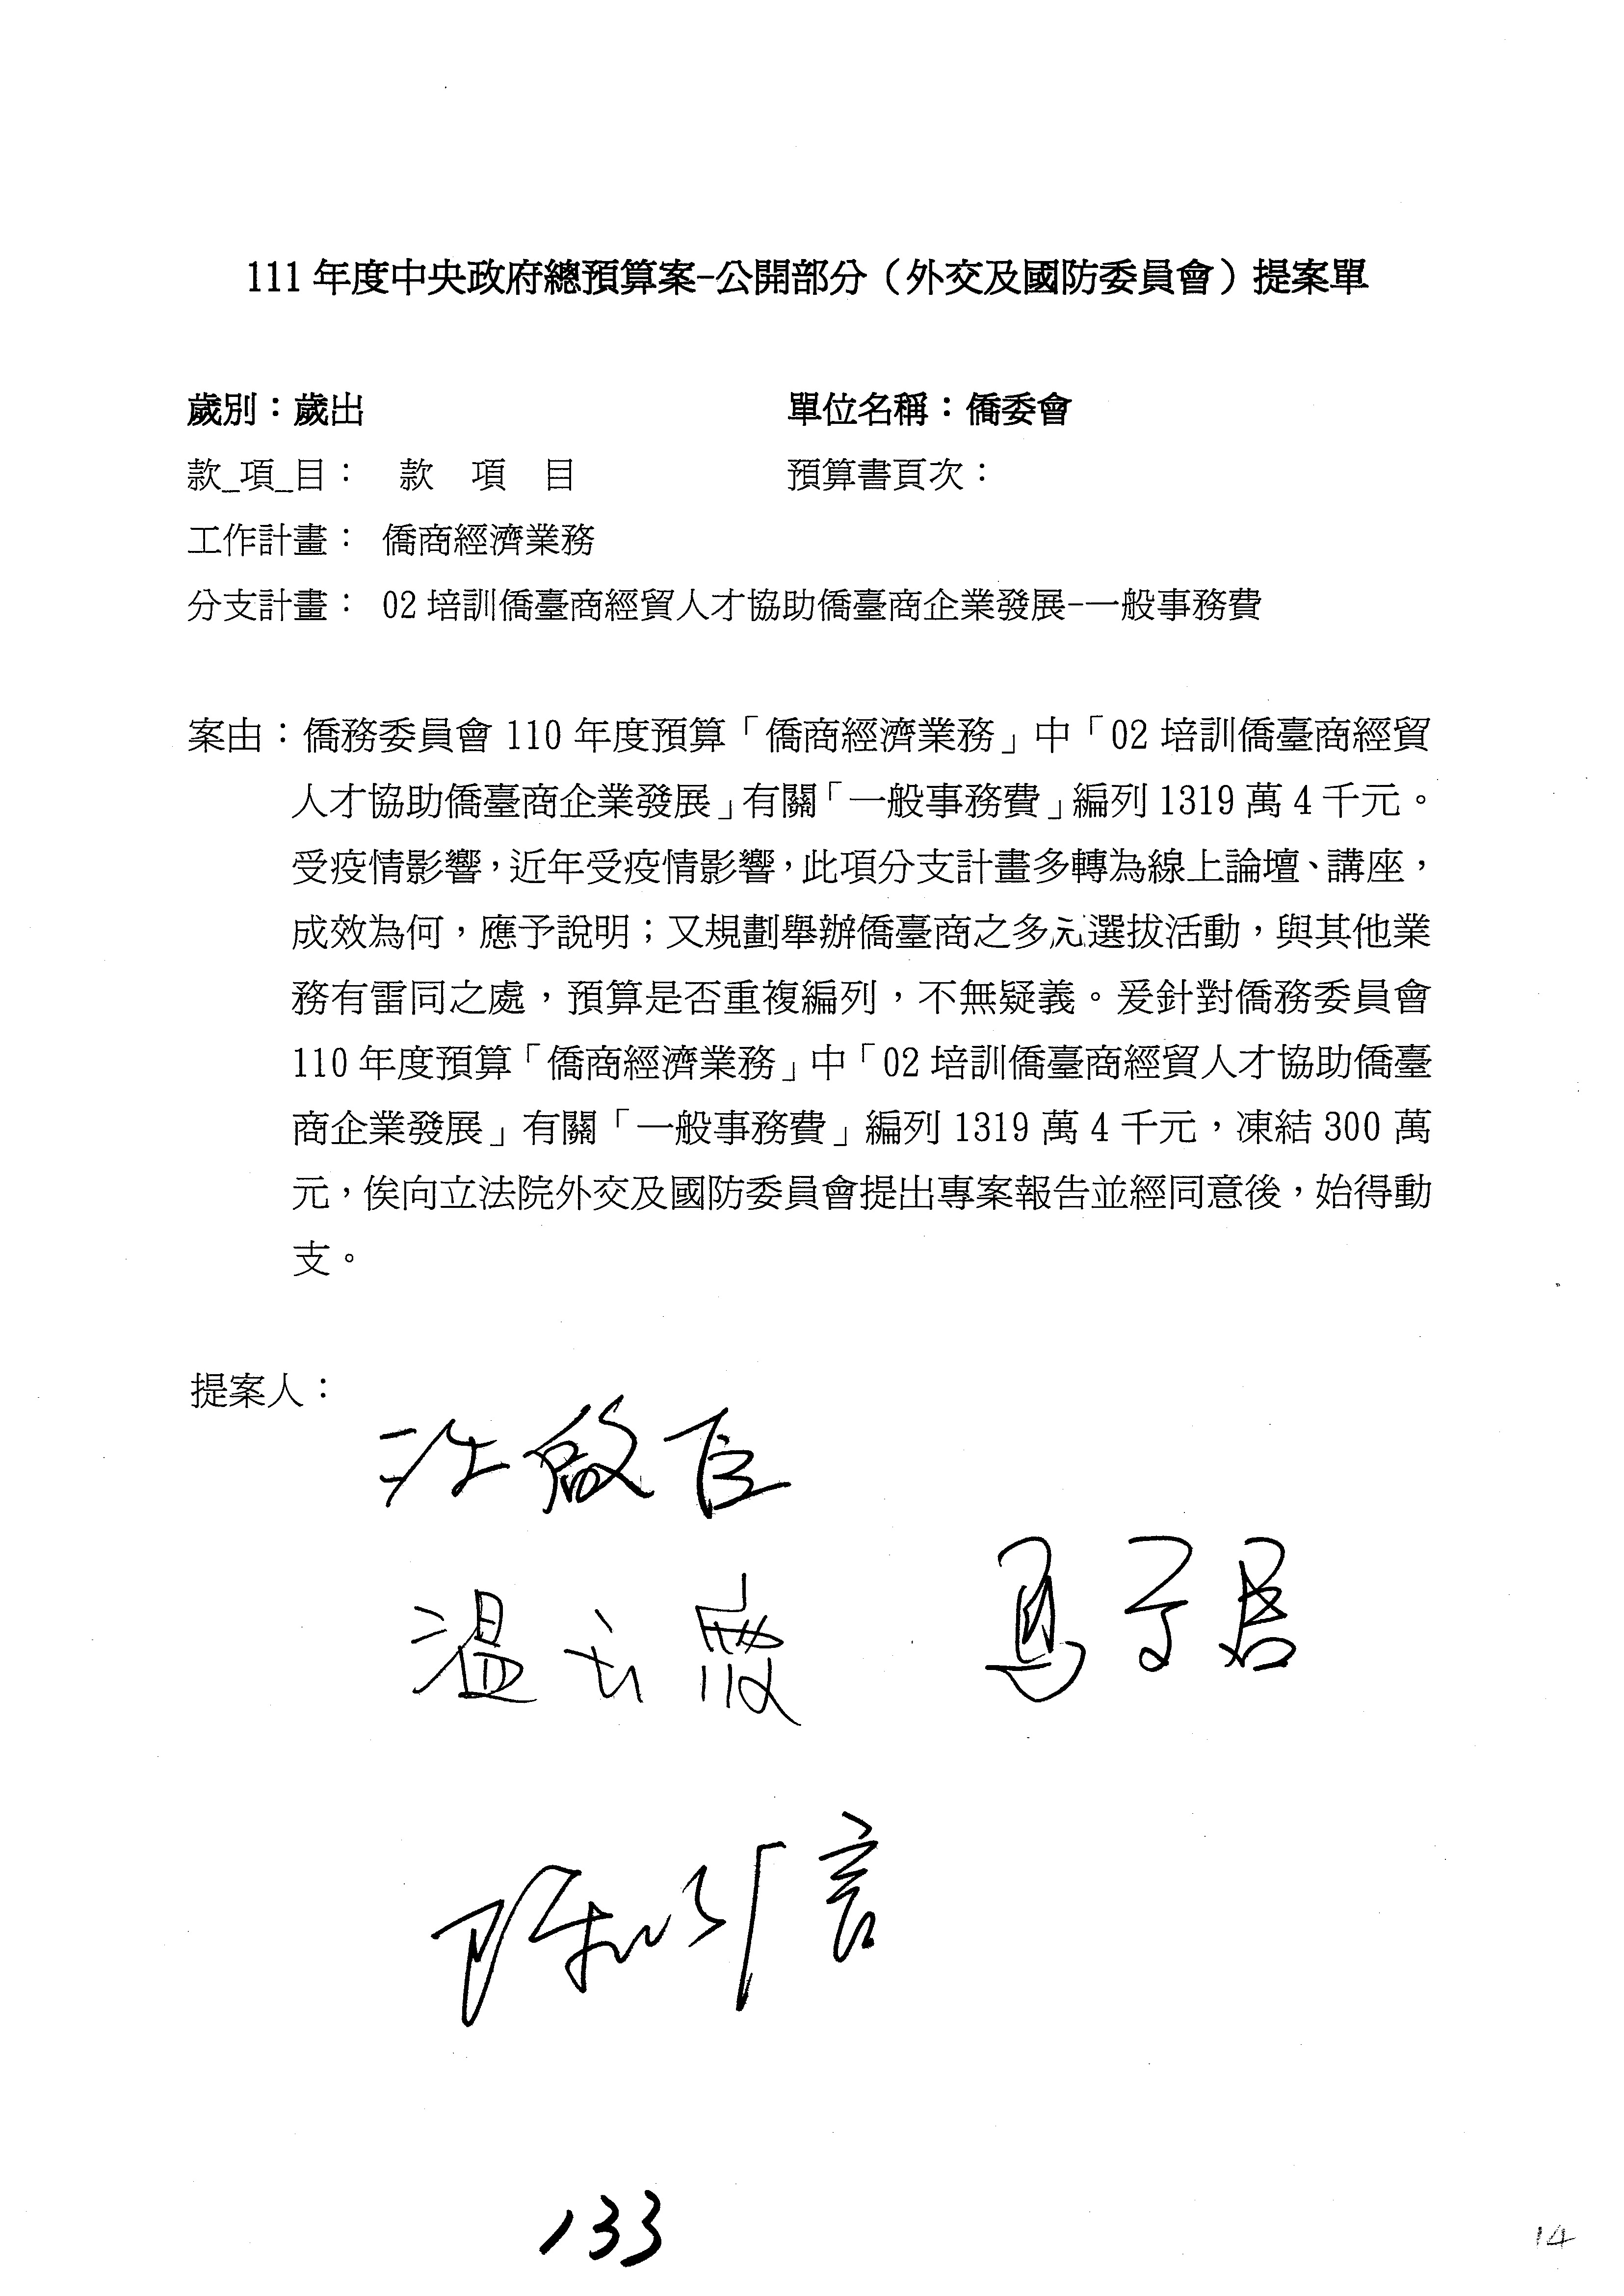 111 年度中央政府總預算案-公開部分（外交及國防委員會）提案單
歲別：歲出 單位名稱：僑委會
款_項_目： 款 項 目 預算書頁次：
工作計畫： 僑商經濟業務
分支計畫： 02 培訓僑臺商經貿人才協助僑臺商企業發展-一般事務費
案由：僑務委員會 110 年度預算「僑商經濟業務」中「02 培訓僑臺商經貿
人才協助僑臺商企業發展」有關「一般事務費」編列 1319 萬 4 千元。
受疫情影響，近年受疫情影響，此項分支計畫多轉為線上論壇、講座，
成效為何，應予說明；又規劃舉辦僑臺商之多元選拔活動，與其他業
務有雷同之處，預算是否重複編列，不無疑義。爰針對僑務委員會
110 年度預算「僑商經濟業務」中「02 培訓僑臺商經貿人才協助僑臺
商企業發展」有關「一般事務費」編列 1319 萬 4 千元，凍結 300 萬
元，俟向立法院外交及國防委員會提出專案報告並經同意後，始得動
支。
提案人：
江啟臣
溫玉霞 馬文君
陳以信
133
14